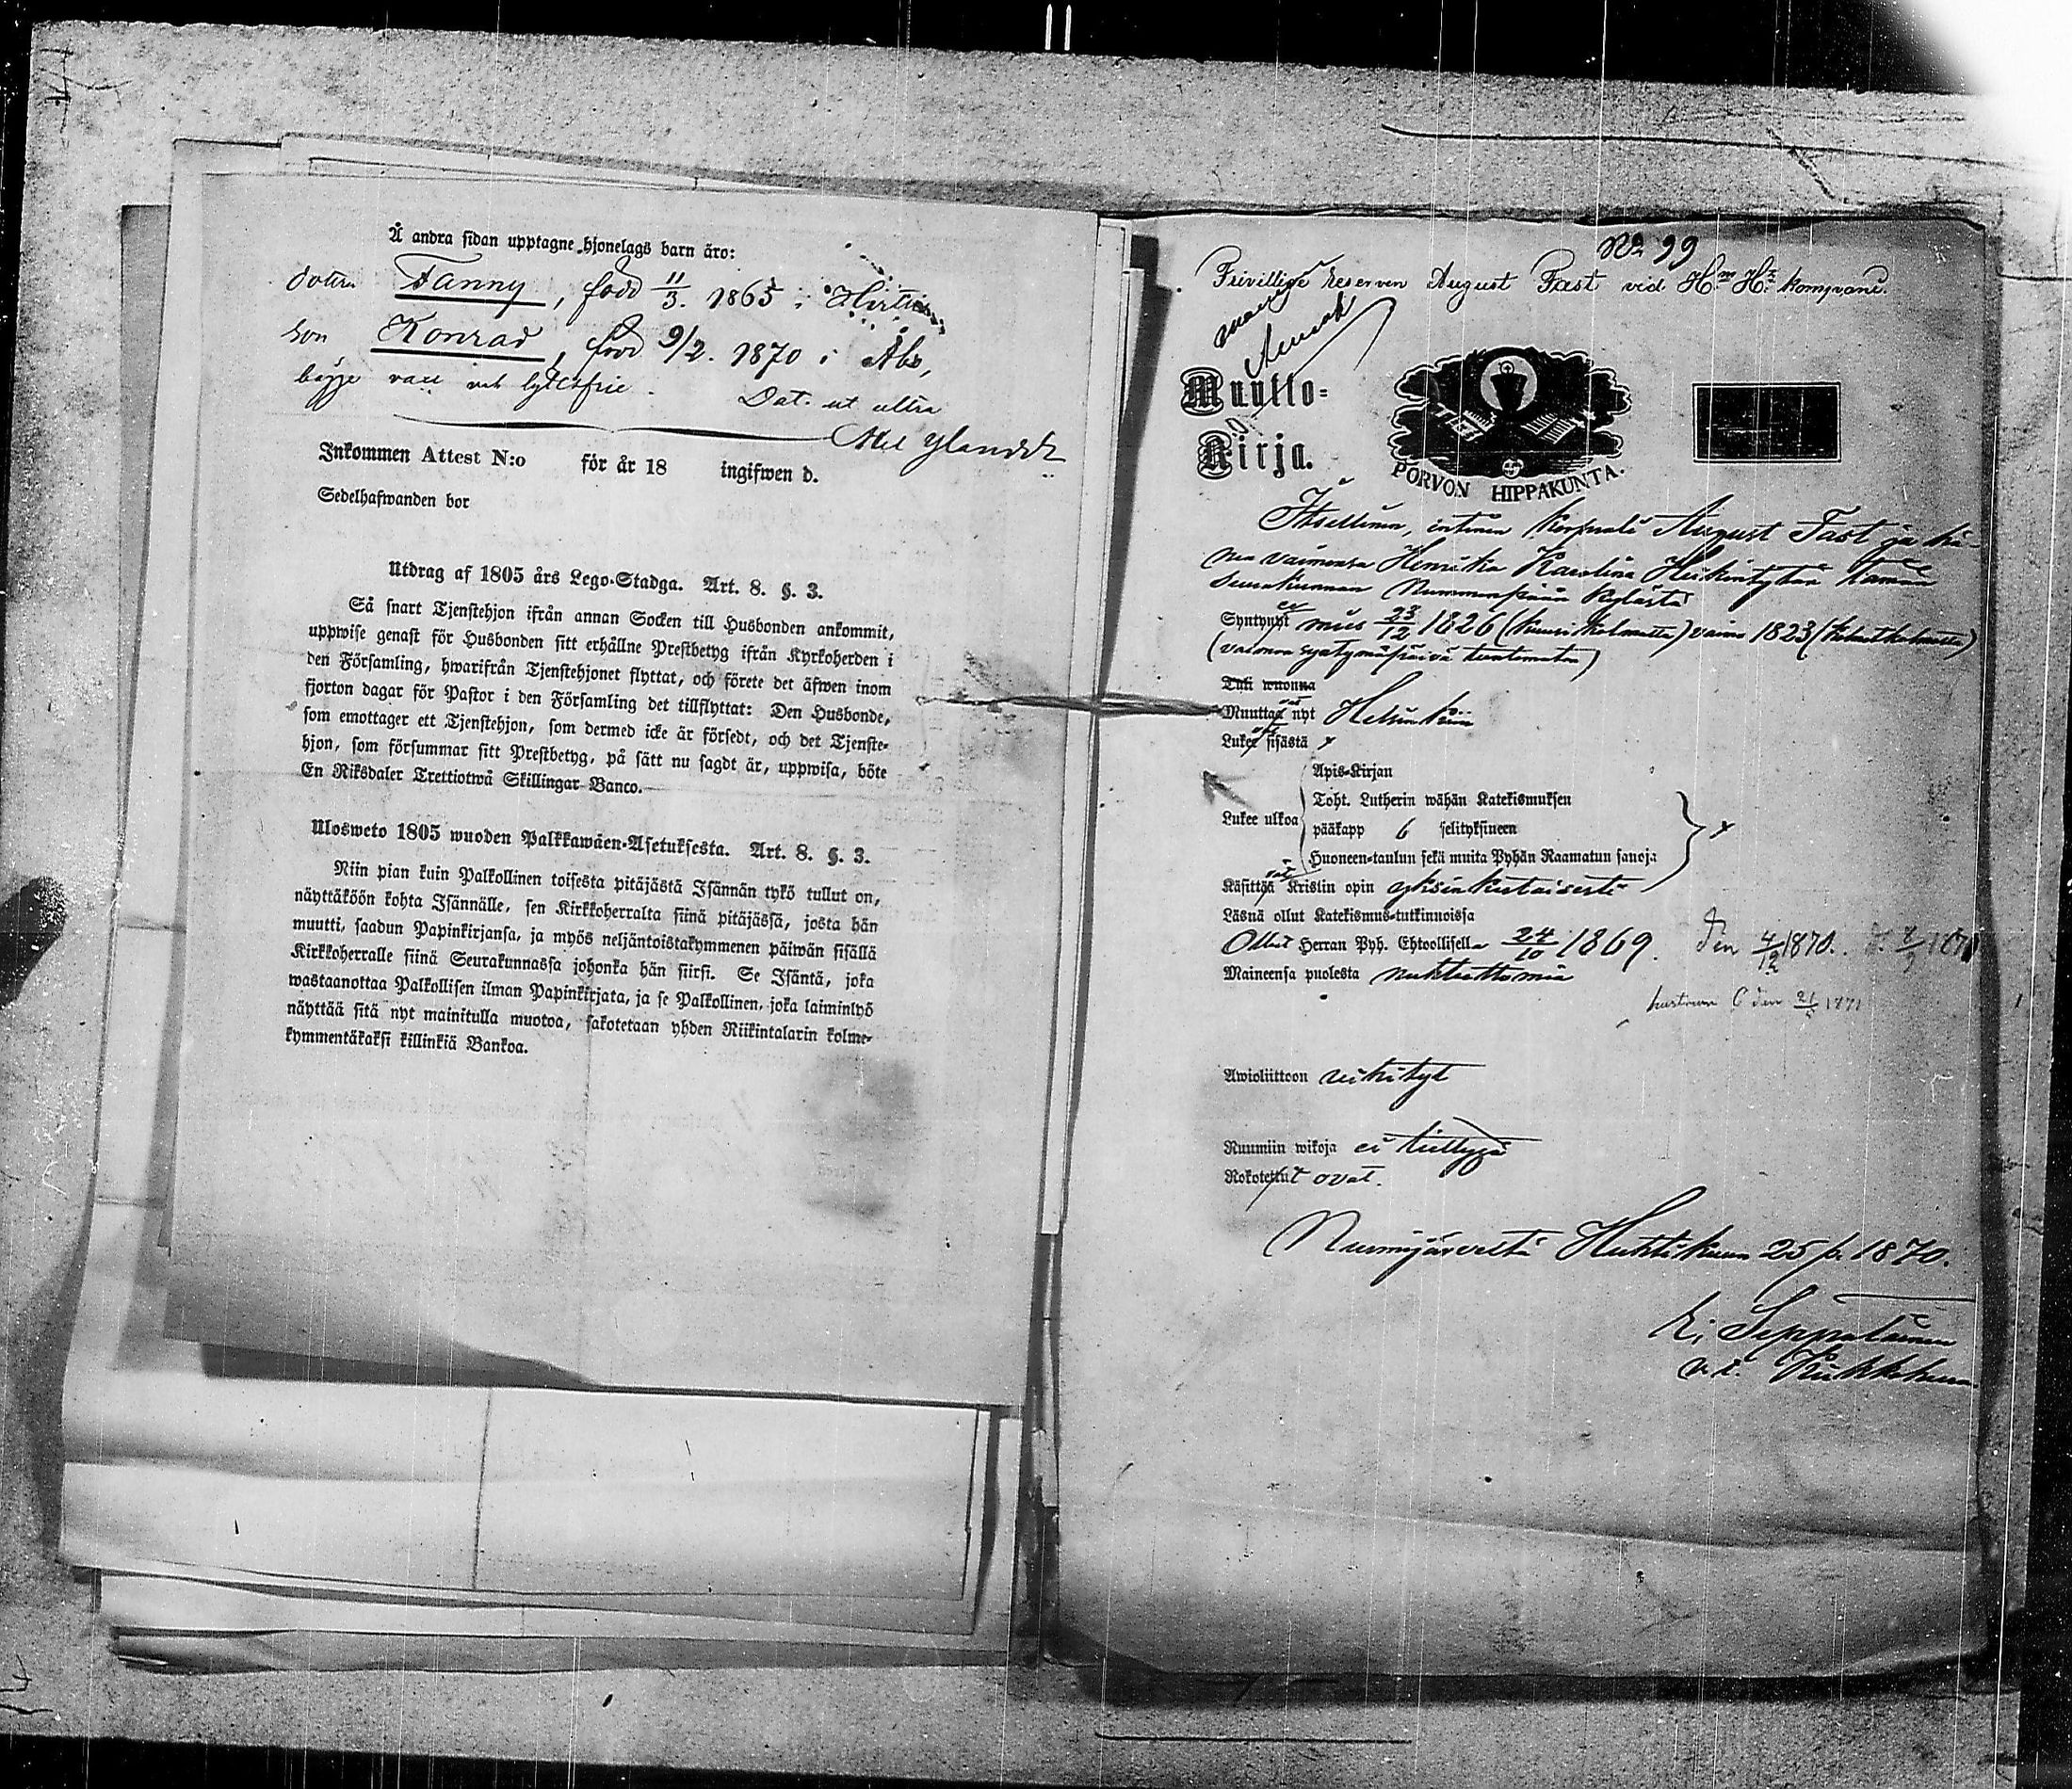 Å andra sidan upptagne hjonelags barn äro:
dotter Fanny, född 11/3. 1865 i
son Konrad, född 9/2. 1870 i Åbo,
bägge vacc. och lytesfrie. Dat. ut ultra
Inkommen Attest N:o för år 18 ingifwen d.
Sedelhafwanden bor
Utdrag af 1805 års Lego-Stadga. Art. 8. §. 3.
Så snart Tjenstehjon ifrån annan Socken till Husbonden ankommit,
uppwise genast för Husbonden sitt erhållne Prestbetyg ifrån Kyrkoherden i
den Församling, hwarifrån Tjenstehjonet flyttat, och förete det äfwen inom
fjorton dagar för Pastor i den Församling det tillflyttat: Den Husbonde,
som emottager ett Tjenstehjon, som dermed icke är försedt, och det Tjenste-
hjon, som försummar sitt Prestbetyg, på sätt nu sagdt är, uppwisa, böte
En Riksdaler Trettiotwå Skillingar Banco.
Ulosweto 1805 wuoden Palkkawäen-Asetuksesta. Art. 8. §. 3.
Niin pian kuin Palkollinen toisesta pitäjästä Isännän tykö tullut on,
näyttäköön kohta Isännälle, sen Kirkkoherralta siinä pitäjässä, josta hän
muutti, saadun Papinkirjansa, ja myös neljäntoistakymmenen päiwän sisällä
Kirkkoherralle siinä Seurakunnassa johonka hän siirsi. Se Isäntä, joka
wastaanottaa Palkollisen ilman Papinkirjata, ja se Palkollinen, joka laiminlyö
näyttää sitä nyt mainitulla muotoa, sakotetaan yhden Riikintalarin kolme-
kymmentäkaksi killinkiä Bankoa.
No 99
Frivillige reserven August Fast vid kompani.
Muutto-
Kirja.
PORVON HIPPAKUNTA.
Itsellinen, entinen Korprali August Fast ja hä-
nen vaimonsa Henrika Karolina Heikintytär tämän
seurakunnan Nummenpään kylästä
Syntynyt mies 23/12 1826 (kuusikolmatta) vaimo 1823 (kolmekolmatta)
(vaimon syntymäpäivä tuntematon)
Tuli wuonna
Muuttavat nyt Helsinkiin
Lukevat sisästä x
Lukee ulkoa
Apis-Kirjan
Toht. Lutherin wähän Katekismuksen
pääkapp 6 selityksineen
Huoneen-taulun sekä muita Pyhän Raamatun sanoja
x
Käsittävät Kristin opin yksinkertaisesti
Läsnä ollut Katekismus-tutkinnoissa
Ollut Herran Pyh. Ehtoollisella 24/10 1869. den 4/12 1870.
Maineensa puolesta nuhteettomia
hustrun den 21/5 1871
Awioliittoon vihityt
Ruumiin wikoja ei tiettyjä
Rokotetut ovat.
Nurmijärveltä Huhtikuun 25 p. 1870.
Seppalainen
v.t. Kirkkoherra